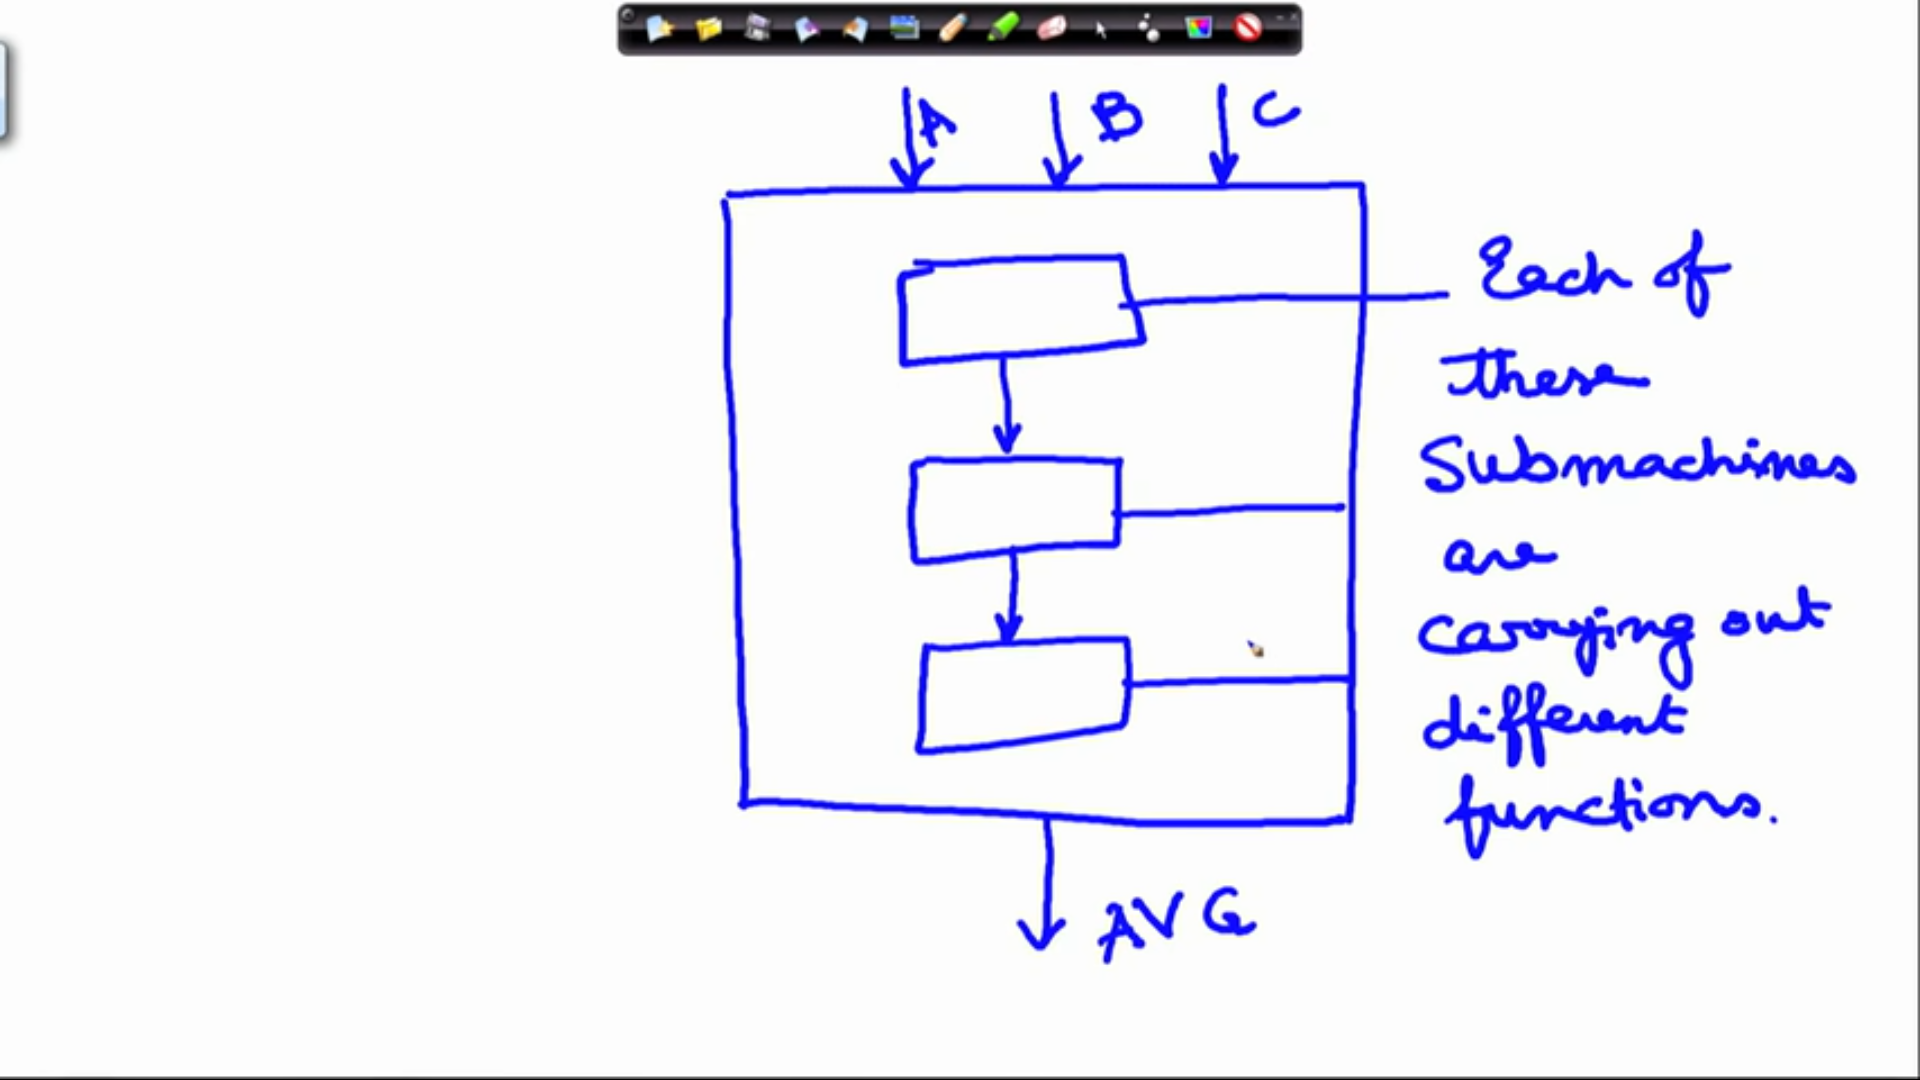 A B C
Each of
these
Submachines
are
carrying out
different
functions.
AVG